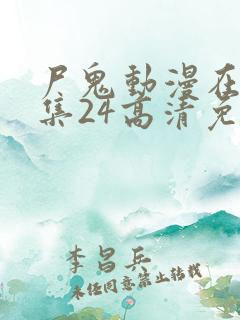 尸鬼動漫在
集24高清免
李昌兵
未经同意禁止转载